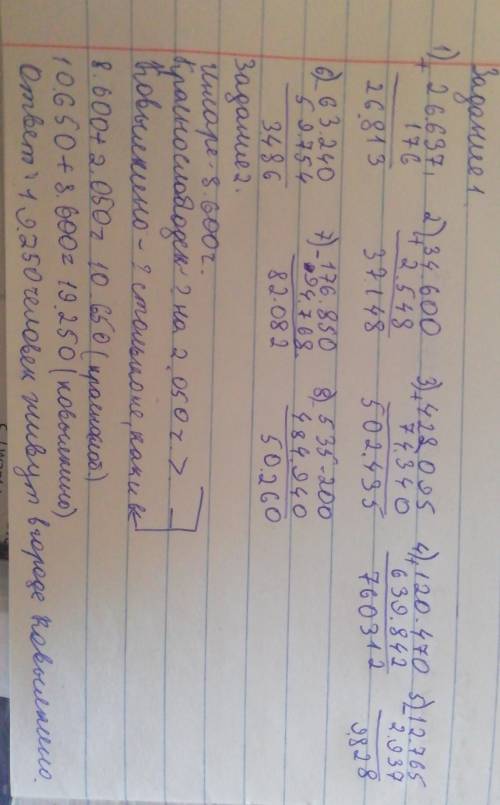 Задание 1.
1) + 26.637, 2) + 34.600 3) + 428.095 4) + 120.470 5) - 12.765
176 2.548 74.340 639.842 2.937
26.813 37148 502.435 760312 9.828
6) - 63.240 7) - 176.850 8) - 535.200
59.754 94.768 484.940
3486 82.082 50.260
Задание 2.
Инсаре - 8.600 ч.
Краснослободск - ? на 2.050 ч. >
Ковылкино - ? столько же, как и в
8.600 + 2.050 = 10 650
10.650 + 8.600 = 19.250 (ковылкино)
Ответ: 19.250 человек живут в городе Ковылкино.